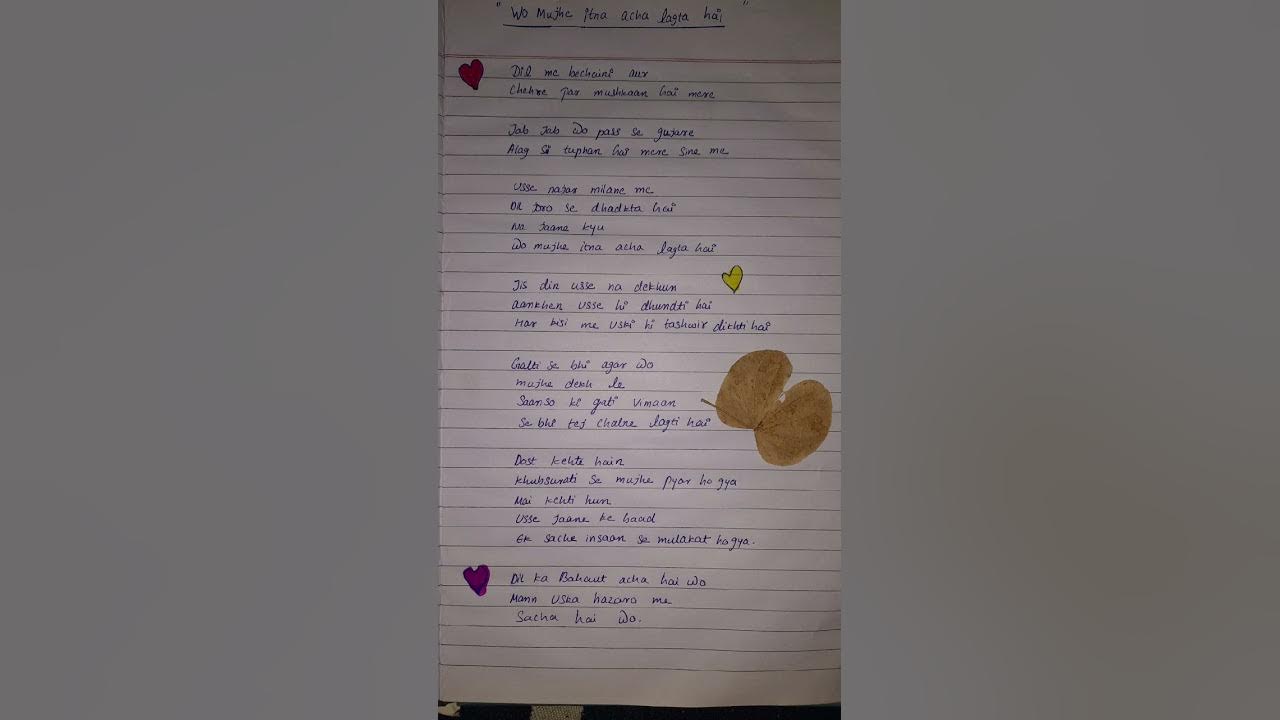 " Wo Mujhe itna acha lagta hai "
Dil me bechaini aur
Chehre par mushkaan hai mere
Jab Jab Wo pass se gujare
Alag si tuphan hai mere sine me
Usse najar milane me
Dil joro se dhadkta hai
Na Jaane kyu
Wo mujhe itna acha lagta hai
Jis din usse na dekhun
aankhen usse hi dhundti hai
Har kisi me uski hi tashwir dikhti hai
Galti se bhi agar wo
mujhe dekh le
Saanso ki gati Vimaan
Se bhi tej chalne lagti hai
Dost kehte hain
Khubsurati se mujhe pyar ho gya
Mai kehti hun
Usse Jaane ke baad
Ek sache insaan se mulakat ho gya.
Dil ka Bahaut acha hai wo
Mann uska hazaro me
Sacha hai Wo.